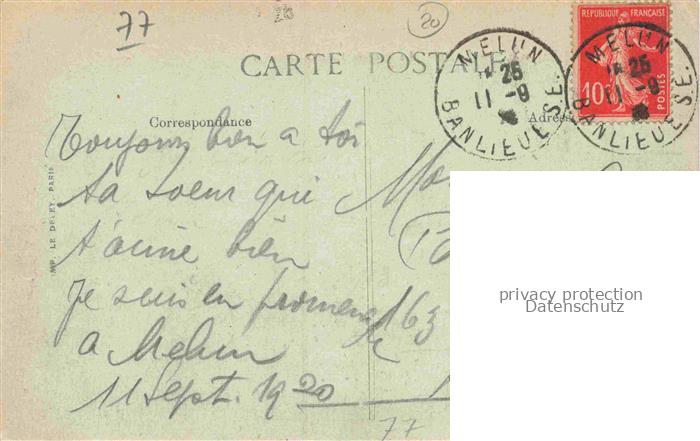 77
20
CARTE POSTALE
RÉPUBLIQUE FRANÇAISE
10
POSTES
MELUN
25
11 - 9
BANLIEUE S.E.
MELUN
25
11 - 9
BANLIEUE S.E.
Correspondance
Adresse
IMP. LE DELEY, PARIS
Toujours bien a toi
ta soeur qui
t'aime bien
je suis en promenade
a Melun
11 Sept. 1920
163
77
privacy protection
Datenschutz